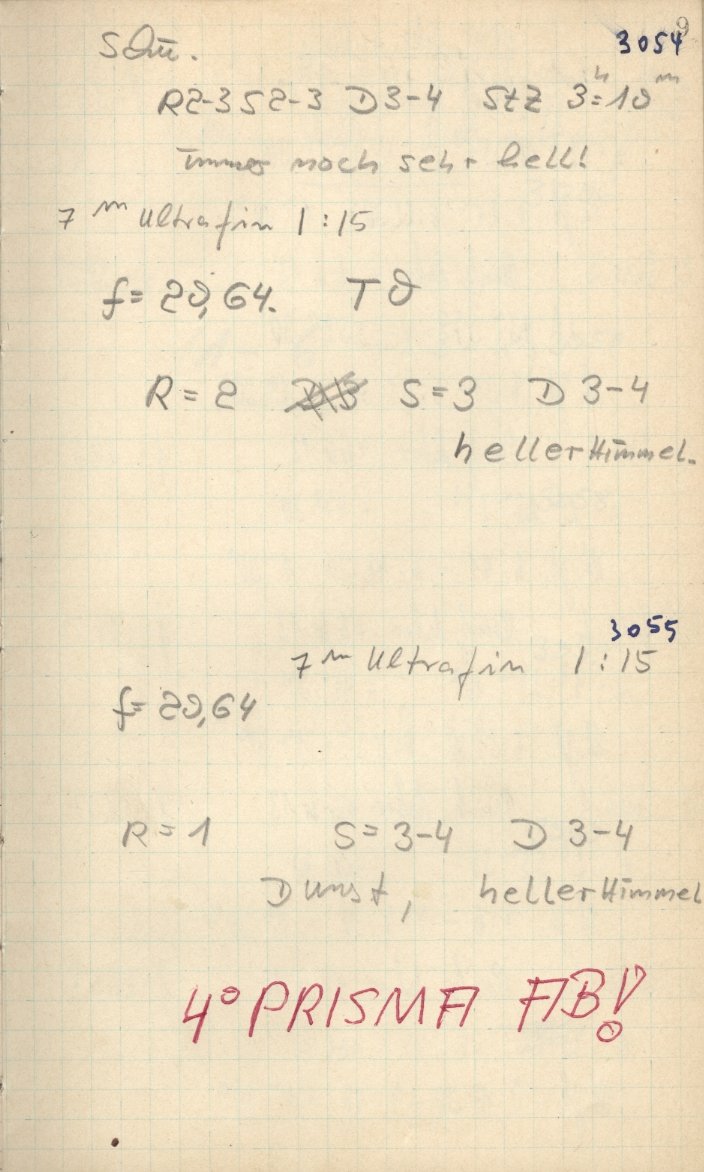 9
3054
Sdm.
R2-3 S2-3 D3-4 StZ 3h=10m
immer noch sehr hell!
7m Ultrafin 1:15
f= 20,64. T0
R=2 S=3 D 3-4
heller Himmel.
3055
7m Ultrafin 1:15
f= 20,64
R=1 S=3-4 D 3-4
Dunst, heller Himmel
4° PRISMA AB!